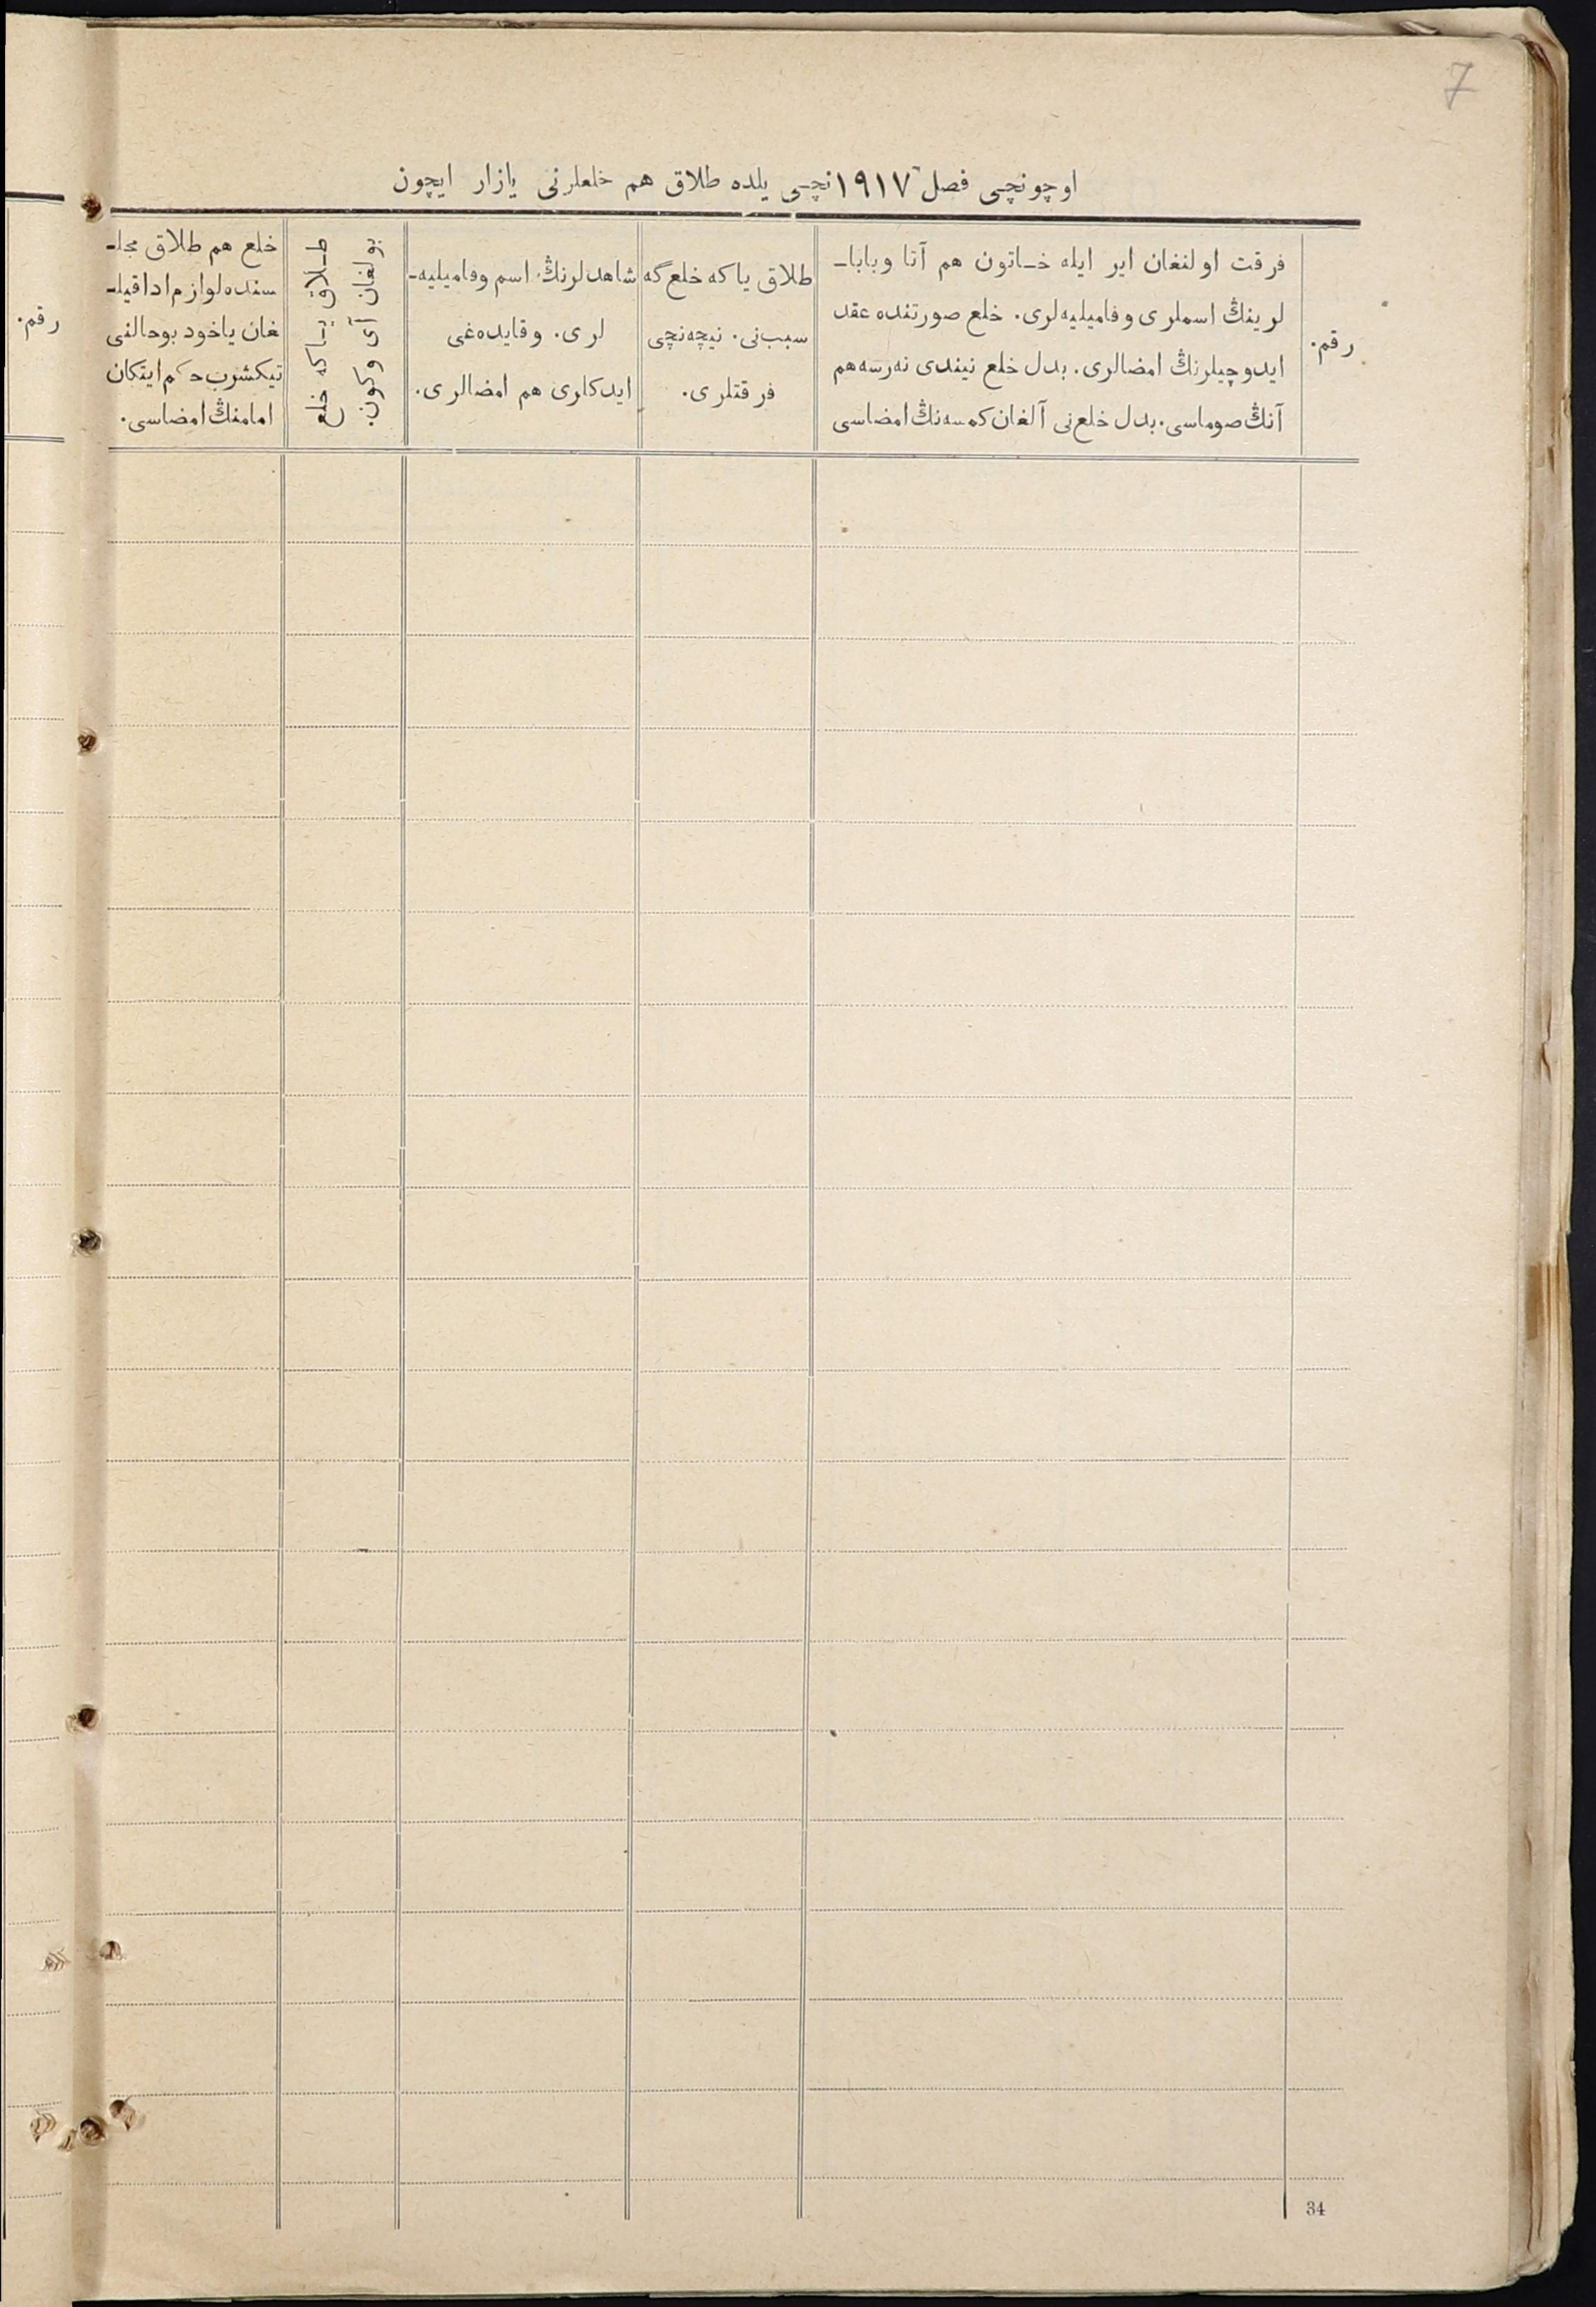 7
اوچونچی فصل ١٩١٧نچی یلده طلاق هم خلعلرنی یازار ایچون
رقم.
فرقت اولنغان ایر ایله خـاتون هم آتا وبابا-
لرینڭ اسملری وفامیلیه‌لری. خلع صورتنده عقد
ایدوچیلرنڭ امضالری. بدل خلع نیندی نه‌رسه هم
آنڭ صوماسی. بدل خلع نی آلغان کمسه‌نڭ امضاسی
طلاق یاکه خلع گه
سبب‌نی. نیچه‌نچی
فرقتلری.
شاهدلرنڭ اسم وفامیلیه-
لری. وقایده‌غی
ایدکلری هم امضالری.
طـلاق یـاکه خلع
بولغان آی وکون.
خلع هم طلاق مجلـ
سنده لوازم ادا قیلـ
غان یاخود بوحالنی
تیکشرب حکم ایتکان
امامنڭ امضاسی.
رقم.
34